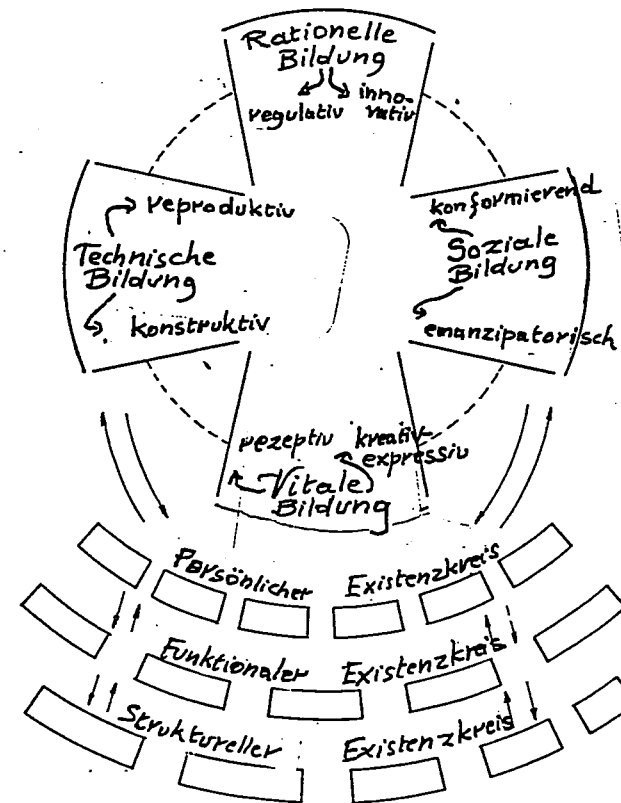 Rationelle
Bildung
regulativ
inno-
vativ
reproduktiv
Technische
Bildung
konstruktiv
konformierend
Soziale
Bildung
emanzipatorisch
rezeptiv
kreativ-
expressiv
Vitale
Bildung
Persönlicher Existenzkreis
Funktionaler Existenzkreis
Struktureller Existenzkreis